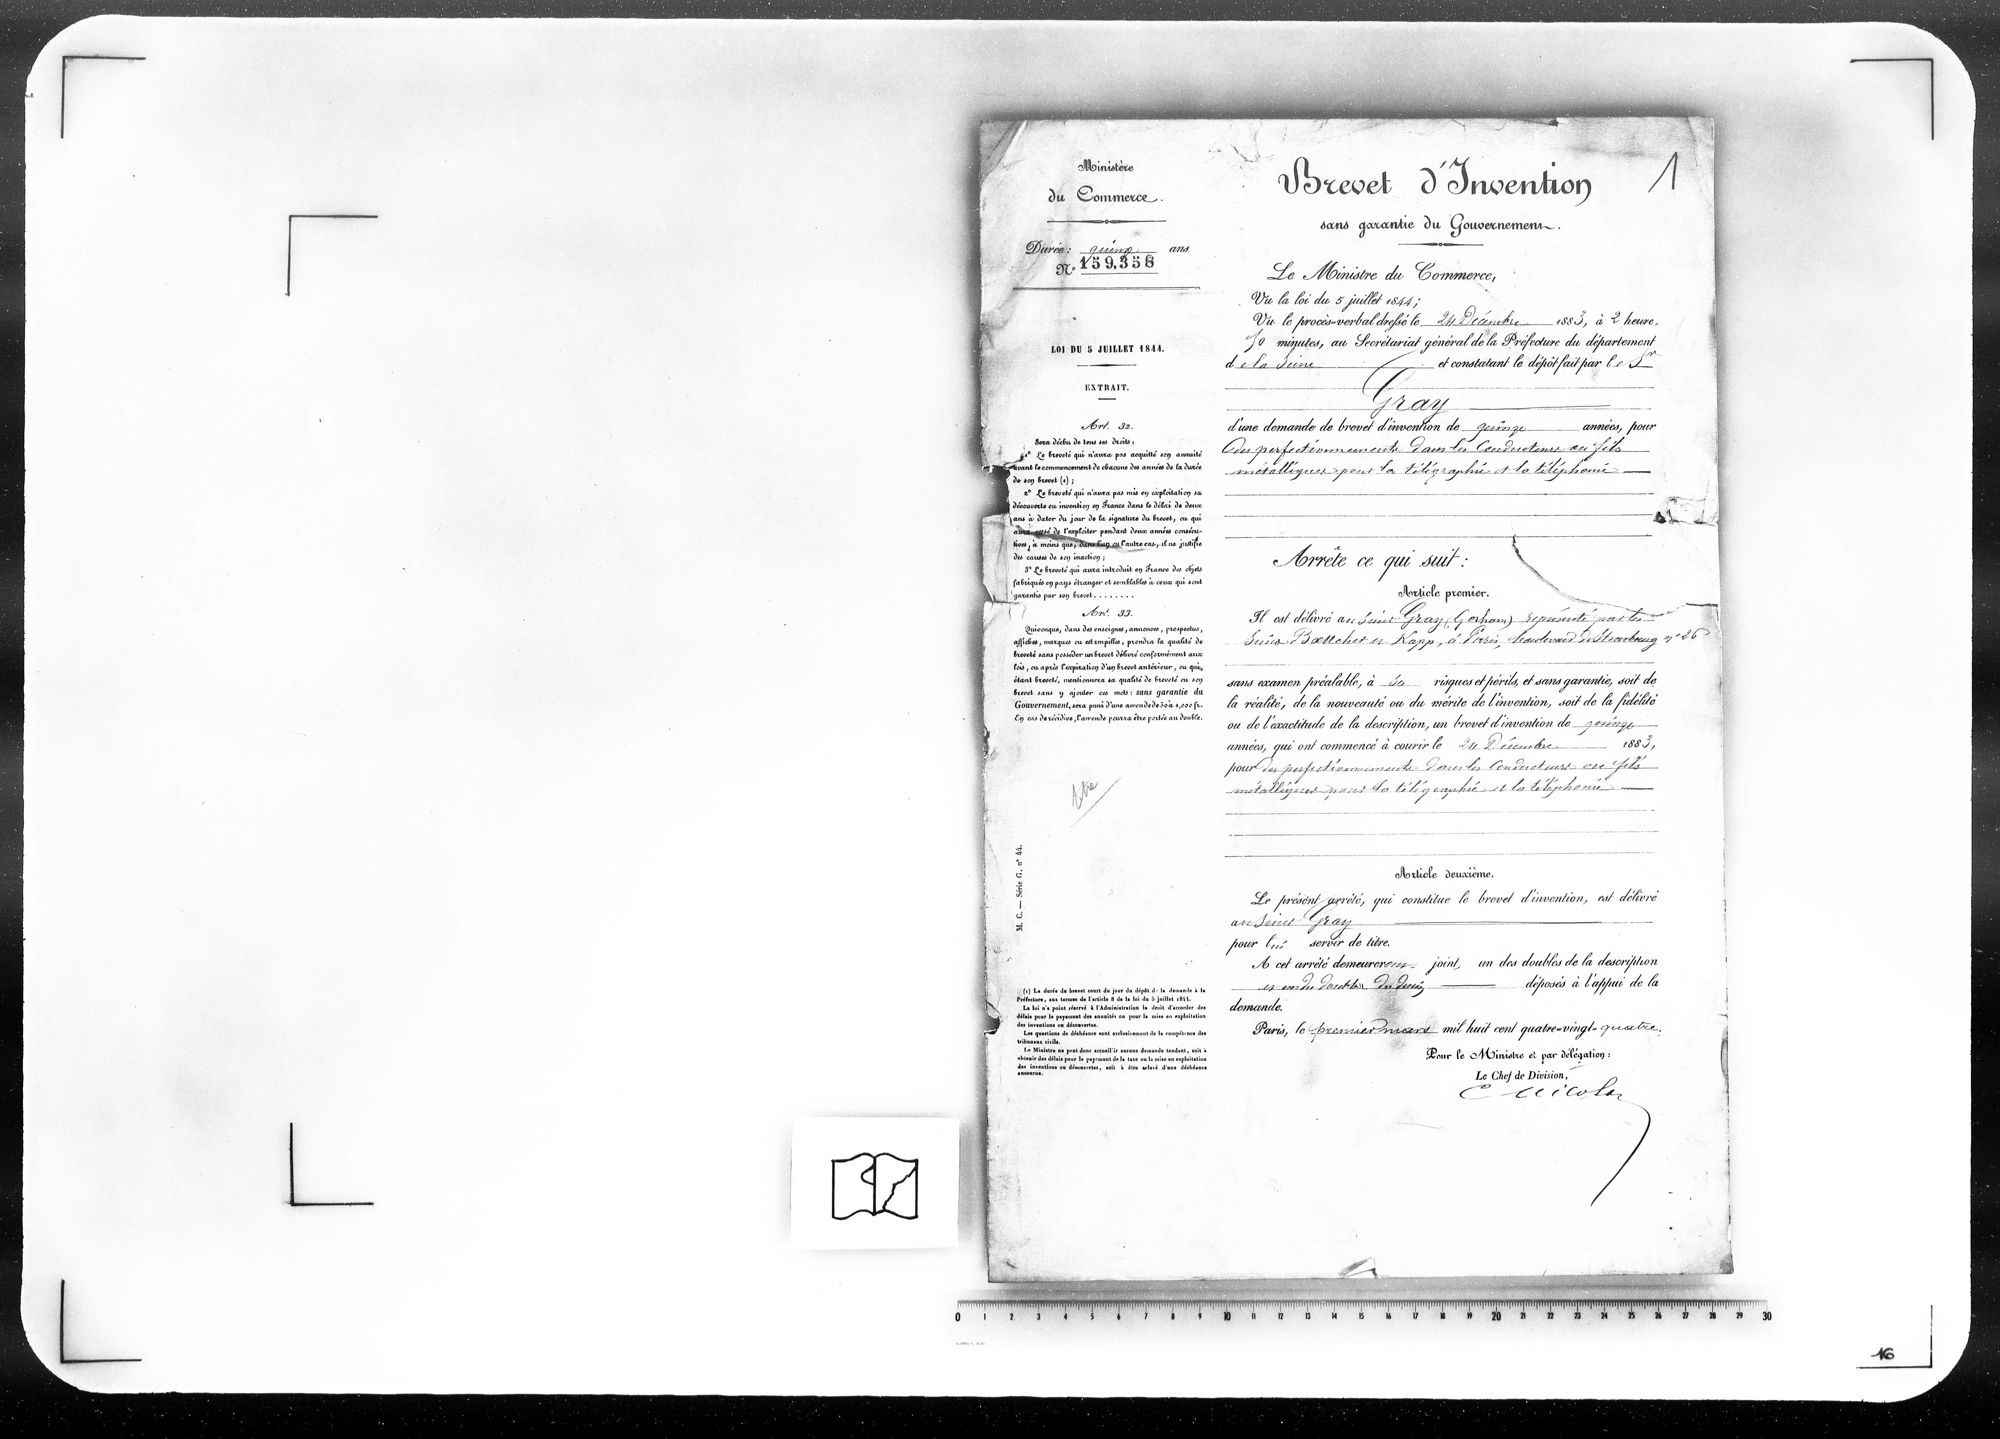 Ministère
du Commerce.
Durée : quinze ans
N° 159,358
LOI DU 5 JUILLET 1844.
EXTRAIT.
Art. 32.
Sera déchu de tous ses droits :
1° Le breveté qui n'aura pas acquitté son annuité
avant le commencement de chacune des années de la durée
de son brevet (1) ;
2° Le breveté qui n'aura pas mis en exploitation sa
découverte ou invention en France dans le délai de deux
ans à dater du jour de la signature du brevet, ou qui
aura cessé de l'exploiter pendant deux années consécu-
tives, à moins que, dans l'un ou l'autre cas, il ne justifie
des causes de son inaction ;
3° Le breveté qui aura introduit en France des objets
fabriqués en pays étranger et semblables à ceux qui sont
garantis par son brevet........
Art. 33.
Quiconque, dans des enseignes, annonces, prospectus,
affiches, marques ou estampilles, prendra la qualité de
breveté sans posséder un brevet délivré conformément aux
lois, ou après l'expiration d'un brevet antérieur, ou qui,
étant breveté, mentionnera sa qualité de breveté ou son
brevet sans y ajouter ces mots : sans garantie du
Gouvernement, sera puni d'une amende de 50 à 1,000 fr.
En cas de récidive, l'amende pourra être portée au double.
M. C. — Série G, n° 44.
(1) La durée du brevet court du jour du dépôt de la demande à la
Préfecture, aux termes de l'article 8 de la loi du 5 juillet 1844.
La loi n'a point réservé à l'Administration le droit d'accorder des
délais pour le payement des annuités ou pour la mise en exploitation
des inventions ou découvertes.
Les questions de déchéance sont exclusivement de la compétence des
tribunaux civils.
Le Ministre ne peut donc accueillir aucune demande tendant, soit à
obtenir des délais pour le payement de la taxe ou la mise en exploitation
des inventions ou découvertes, soit à être relevé d'une déchéance
encourue.
Brevet d'Invention
1
sans garantie du Gouvernement.
Le Ministre du Commerce,
Vu la loi du 5 juillet 1844 ;
Vu le procès-verbal dressé le 24 Décembre 1883, à 2 heure,
50 minutes, au Secrétariat général de la Préfecture du département
de la Seine et constatant le dépôt fait par le Sr
Gray
d'une demande de brevet d'invention de quinze années, pour
des perfectionnements dans les conducteurs ou fils
métalliques pour la télégraphie et la téléphonie
Arrête ce qui suit :
Article premier.
Il est délivré au Sieur Gray (Gorham) représenté par les
Sieurs Boettcher et Kapp, à Paris, boulevard de Strasbourg n° 26
sans examen préalable, à ses risques et périls, et sans garantie, soit de
la réalité, de la nouveauté ou du mérite de l'invention, soit de la fidélité
ou de l'exactitude de la description, un brevet d'invention de quinze
années, qui ont commencé à courir le 24 Décembre 1883,
pour des perfectionnements dans les conducteurs ou fils
métalliques pour la télégraphie et la téléphonie
Article deuxième.
Le présent arrêté, qui constitue le brevet d'invention, est délivré
au Sieur Gray
pour lui servir de titre.
A cet arrêté demeureront joint, un des doubles de la description
et un des doubles du dessin déposés à l'appui de la
demande.
Paris, le premier mars mil huit cent quatre-vingt-quatre.
Pour le Ministre et par délégation :
Le Chef de Division,
E Nicolas
0 1 2 3 4 5 6 7 8 9 10 11 12 13 14 15 16 17 18 19 20 21 22 23 24 25 26 27 28 29 30
16